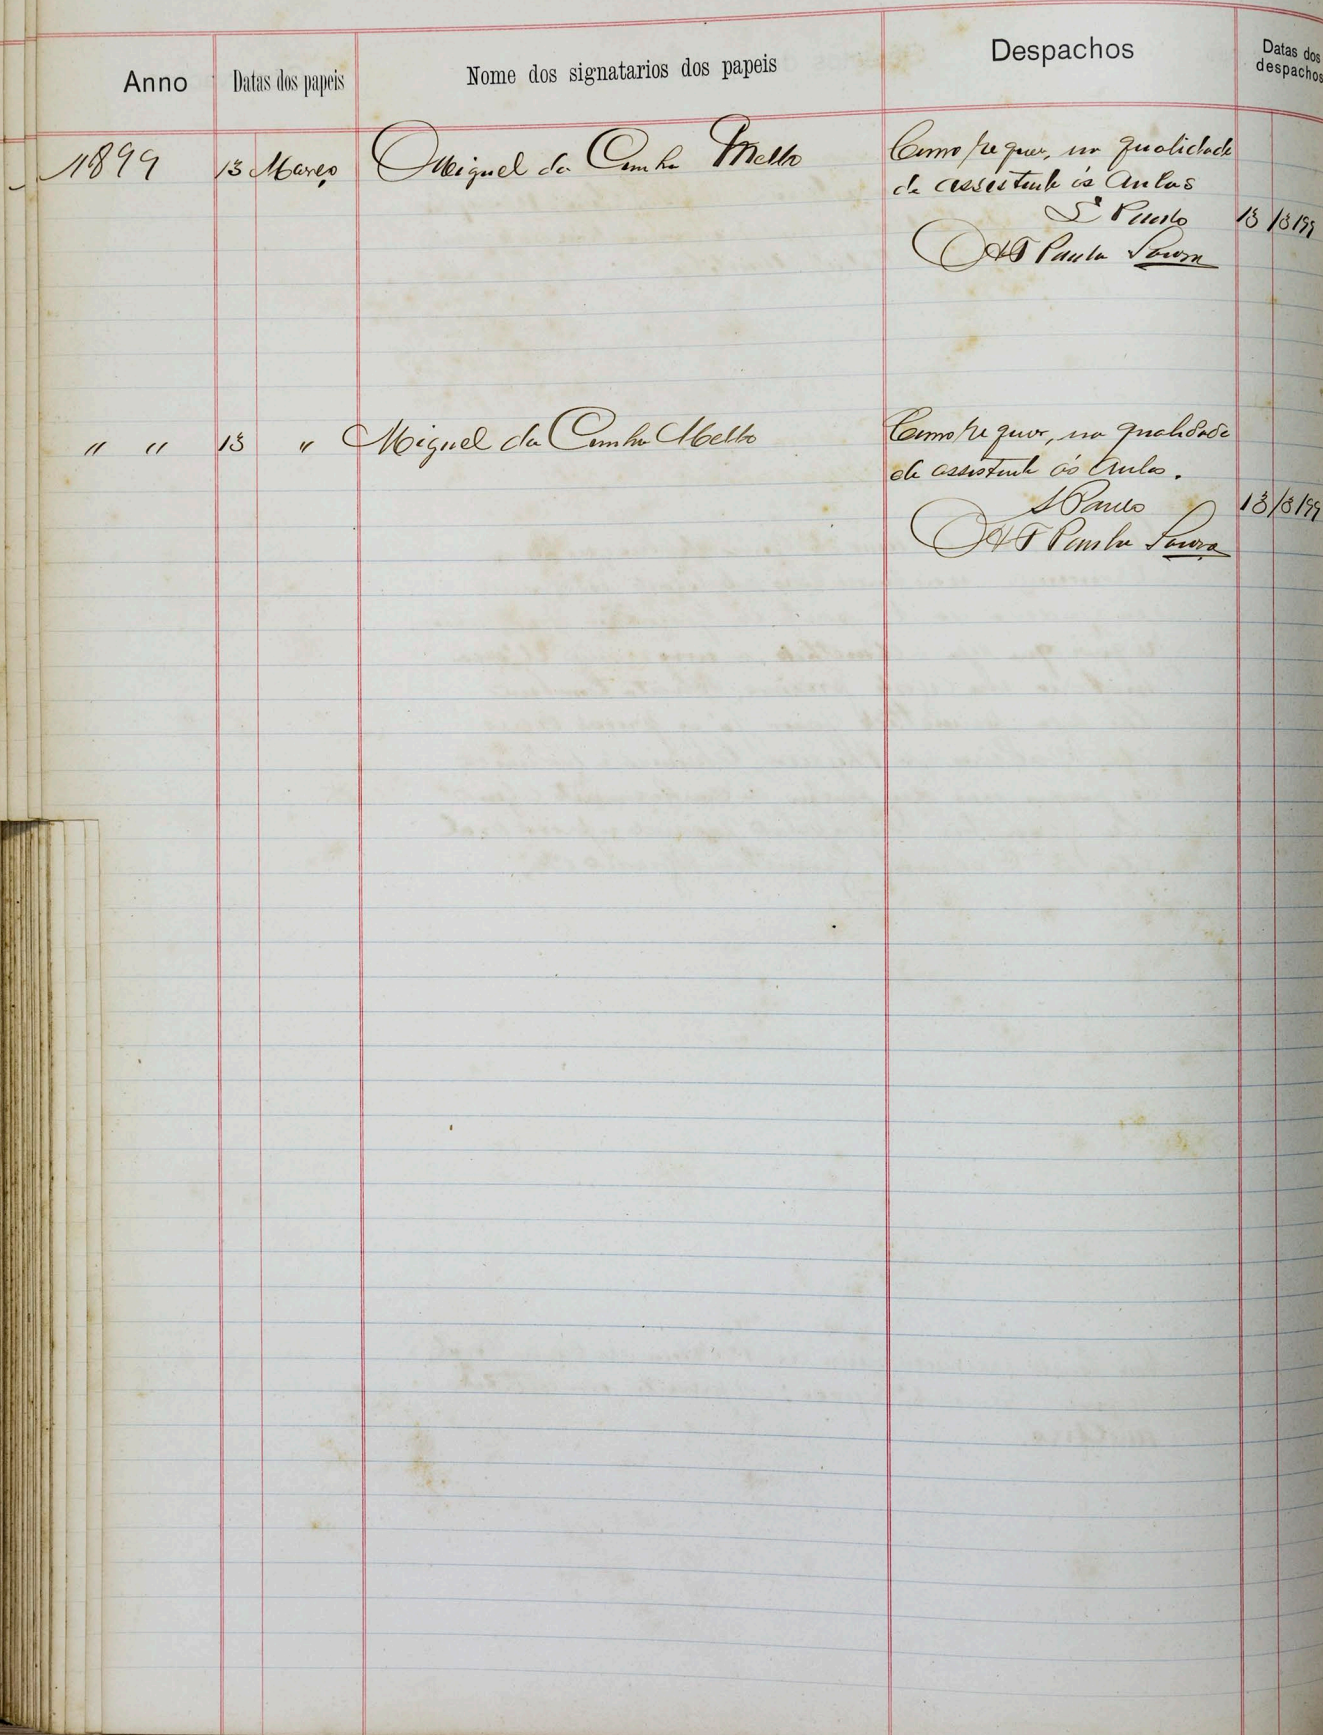 Anno Datas dos papeis Nome dos signatarios dos papeis Despachos Datas dos despachos
1899 13 Março Miguel da Cunha Mello Como requer, na qualidade
de assistente ás Aulas
S. Paulo 13/3/99
A F Paula Souza
" " 13 " Miguel da Cunha Mello Como requer, na qualidade
de assistente ás Aulas.
S Paulo 13/3/99
A F Paula Souza